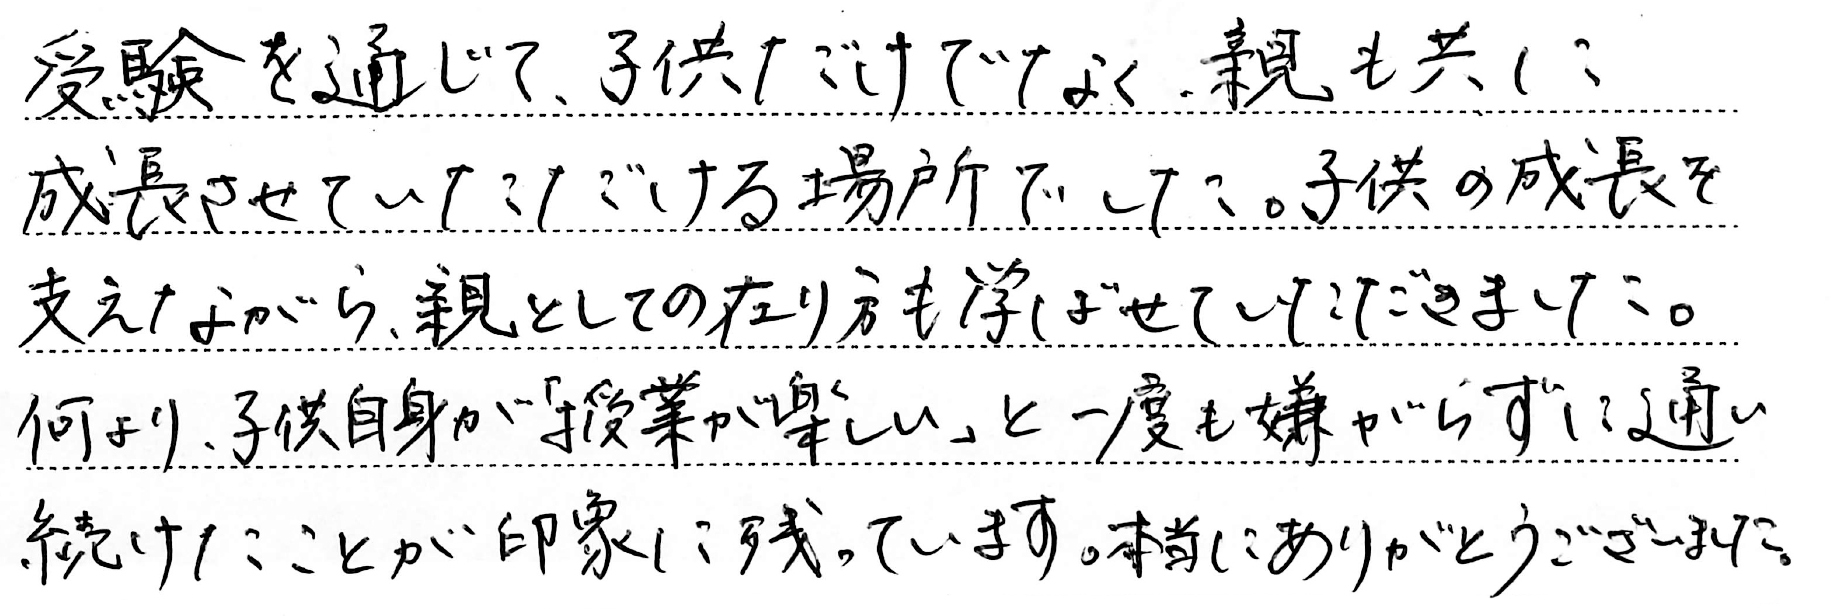 受験を通じて、子供だけでなく、親も共に
成長させていただける場所でした。子供の成長を
支えながら、親としての在り方も学ばせていただきました。
何より、子供自身が「授業が楽しい」と一度も嫌がらずに通い
続けたことが印象に残っています。本当にありがとうございました。